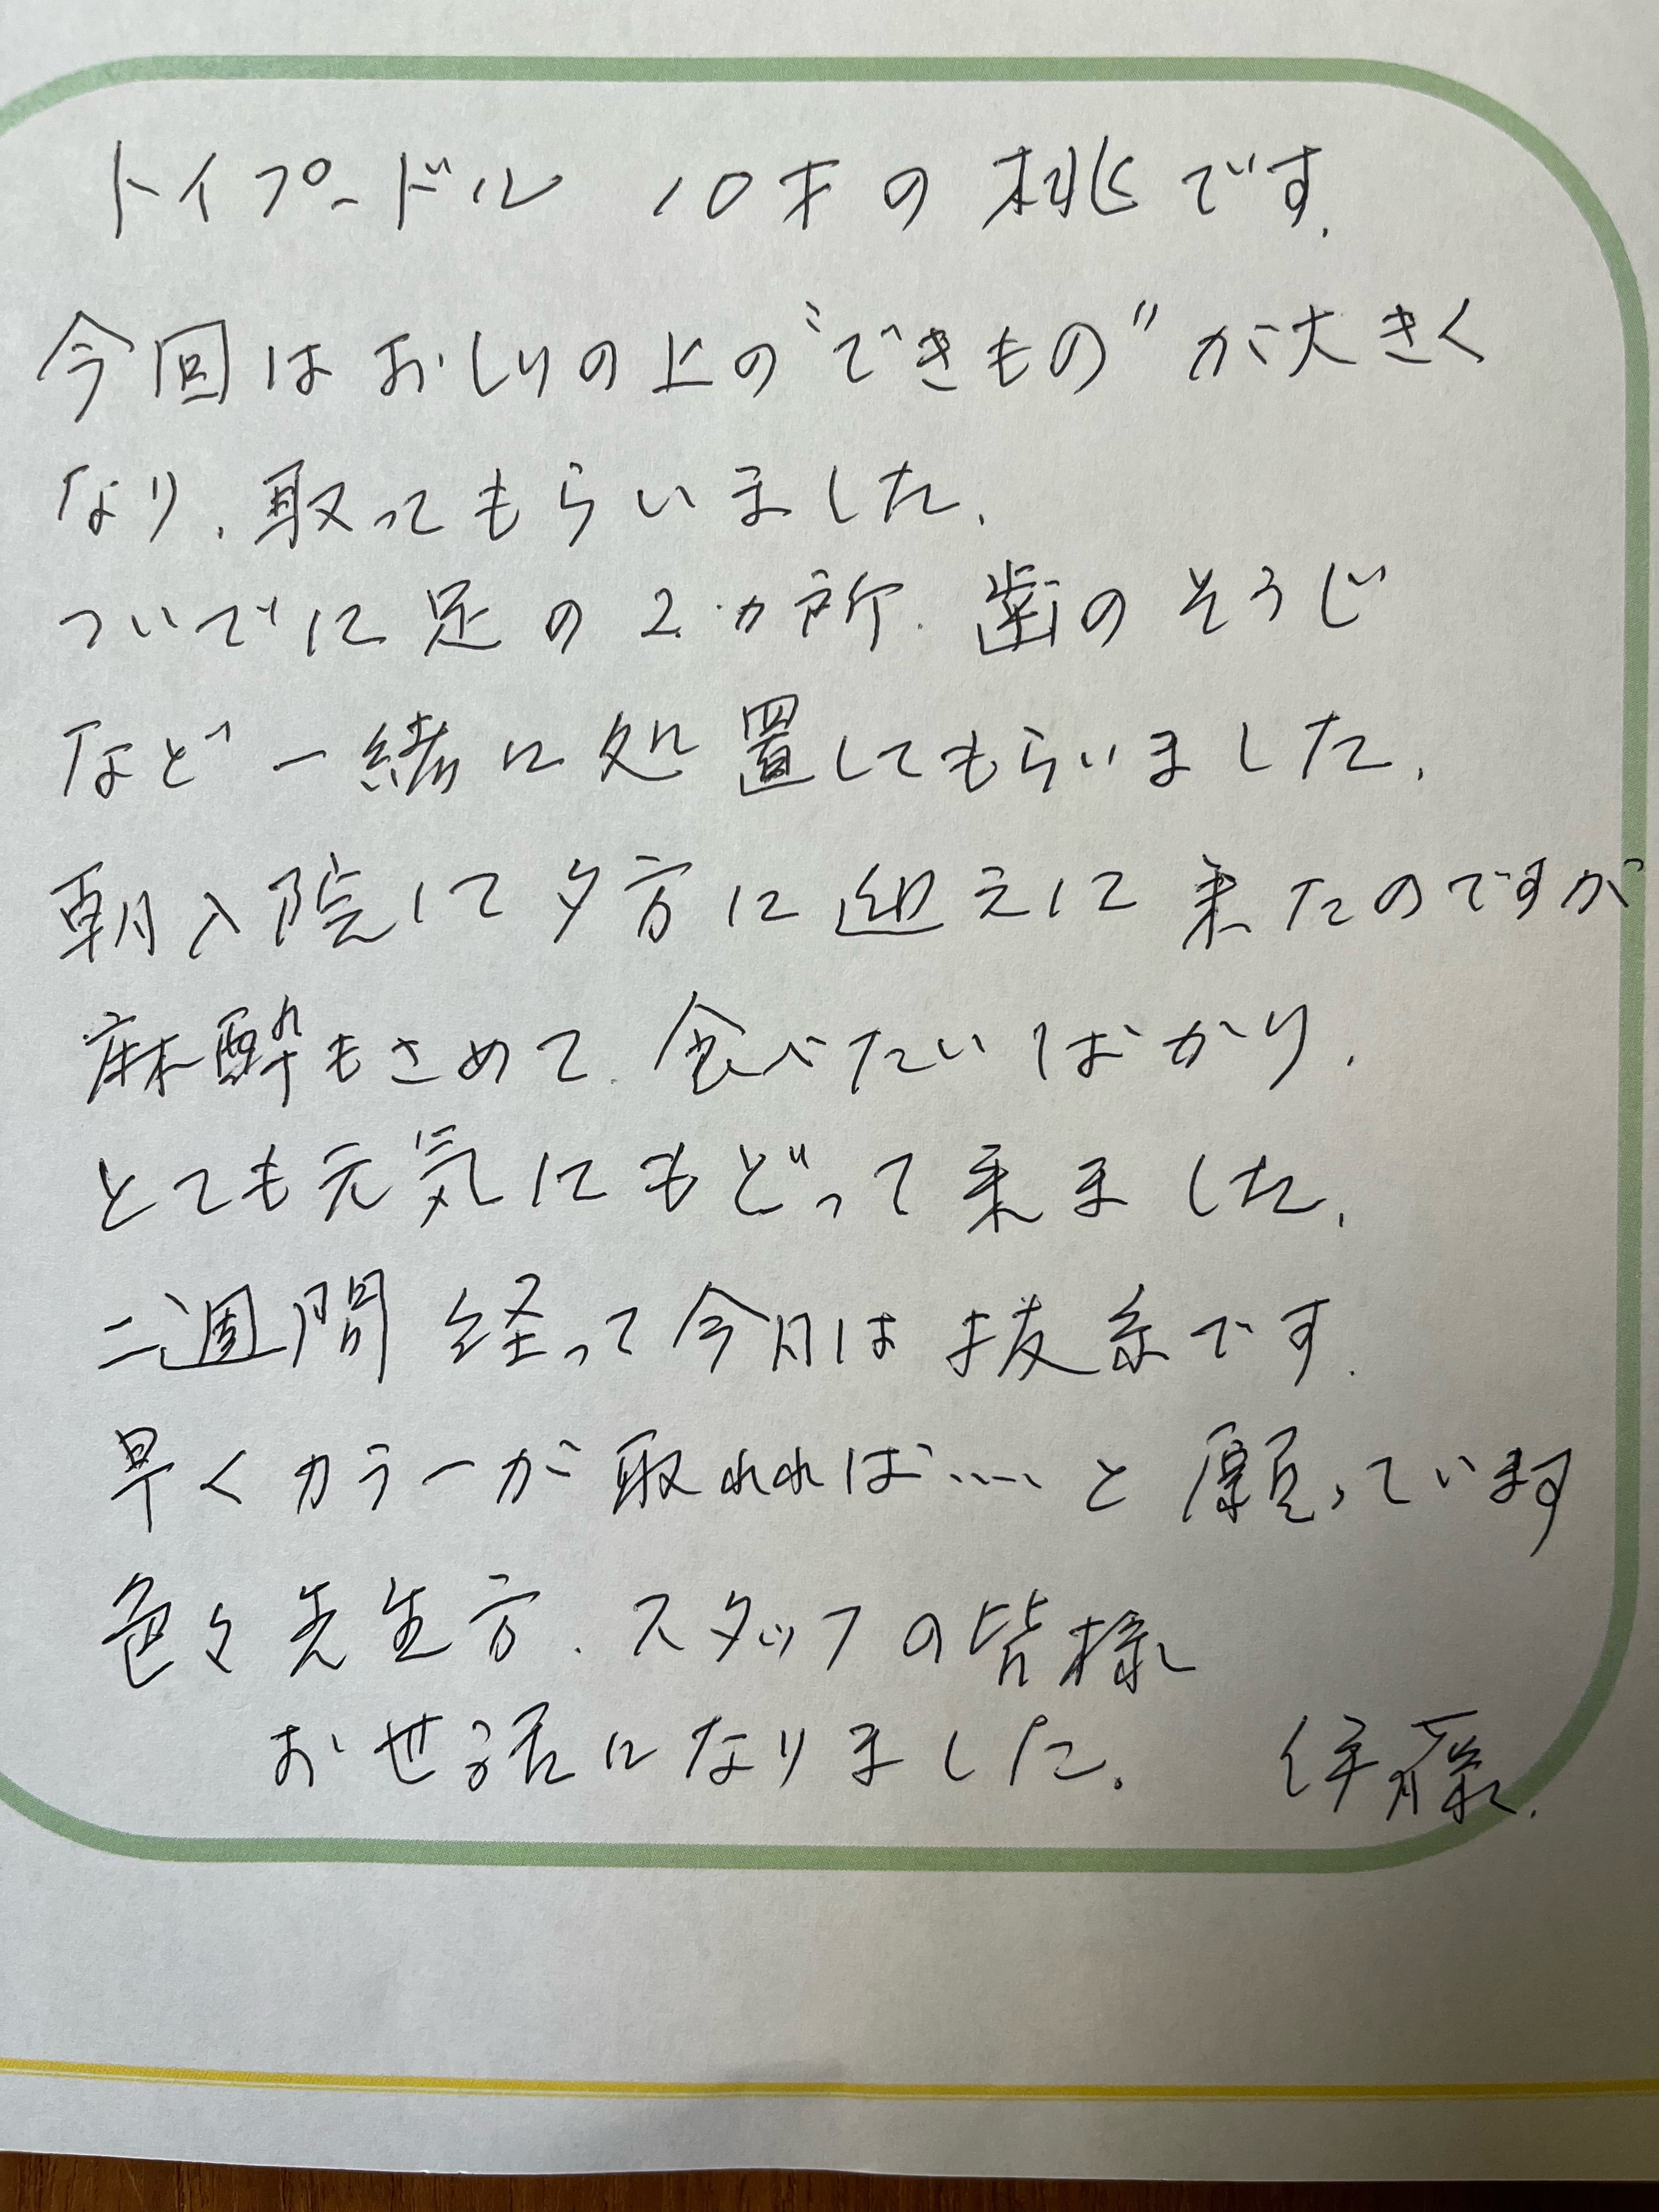 トイプードル 10才の桃です.
今回はおしりの上の“できもの”が大きく
なり、取ってもらいました.
ついでに足の2カ所、歯のそうじ
など一緒に処置してもらいました.
朝入院にて夕方に迎えに来たのですが
麻酔もさめて、食べたいばかり.
とても元気にもどって来ました.
二週間経って今日は抜糸です.
早くカラーが取れれば……と願っています
色々先生方、スタッフの皆様
お世話になりました. 伊藤.